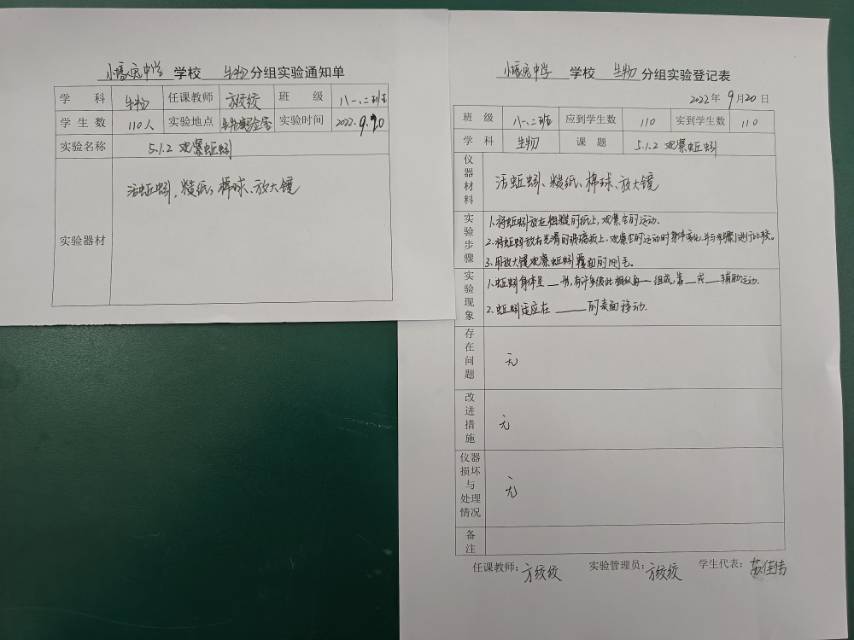 中学 学校 生物 分组实验通知单
学 科 生物 任课教师 方姣姣 班 级 八一、二班
学生数 110人 实验地点 实验时间 2022.9.20
实验名称 5.1.2 观察蚯蚓
实验器材 活蚯蚓、糙纸、棉球、放大镜
中学 学校 生物 分组实验登记表
2022年 9月20日
班 级 八一、二班 应到学生数 110 实到学生数 110
学 科 生物 课 题 5.1.2 观察蚯蚓
仪器材料 活蚯蚓、糙纸、棉球、放大镜
实验步骤 1.将蚯蚓放在粗糙的纸上,观察它的运动.
2.将蚯蚓放在光滑的玻璃板上,观察它的运动时身体变化,并与步骤1进行比较.
3.用放大镜观察蚯蚓腹面的刚毛.
实验现象 1.蚯蚓身体呈___形,有许多彼此相似的___组成,靠___完___辅助运动.
2.蚯蚓适应在____的表面移动.
存在问题 无
改进措施 无
仪器损坏与处理情况 无
备注
任课教师:方姣姣 实验管理员:方姣姣 学生代表: